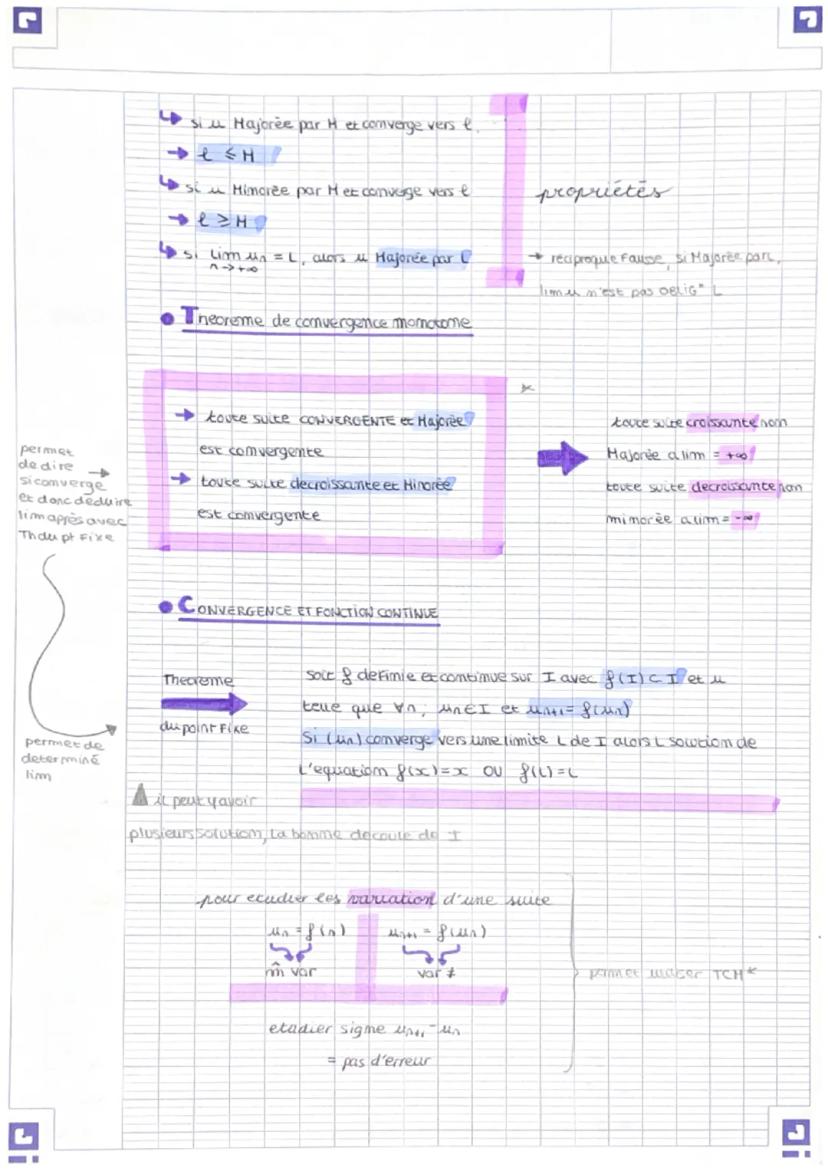 si u Majorée par M et converge vers l.
l ≤ M
si u Minorée par M et converge vers l
l ≥ M
si lim un = L, alors u Majorée par L
n→+∞
propriétés
→ réciproque Fausse, si Majorée par L,
lim u n'est pas OBLIG° L
Theoreme de convergence monotone
*
→ toute suite CONVERGENTE et Majorée
est convergente
→ toute suite decroissante et Minorée
est convergente
toute suite croissante non
Majorée a lim = +∞
toute suite decroissante non
minorée a lim = -∞
permet
de dire →
si converge
et donc déduire
lim après avec
Th du pt Fixe
CONVERGENCE ET FONCTION CONTINUE
Theoreme
du point Fixe
soit f definie et continue sur I avec f(I) ⊂ I et u
telle que ∀n, un ∈ I et un+1 = f(un)
Si (un) converge vers une limite L de I alors L solution de
l'equation f(x)=x OU f(L)=L
permet de
determiné
lim
il peut y avoir
plusieurs solution, la bonne decoule de I
pour etudier les variation d'une suite
un = f(n)
un+1 = f(un)
m̂ var
var ≠
etudier signe un+1 - un
= pas d'erreur
permet utiliser TCM*